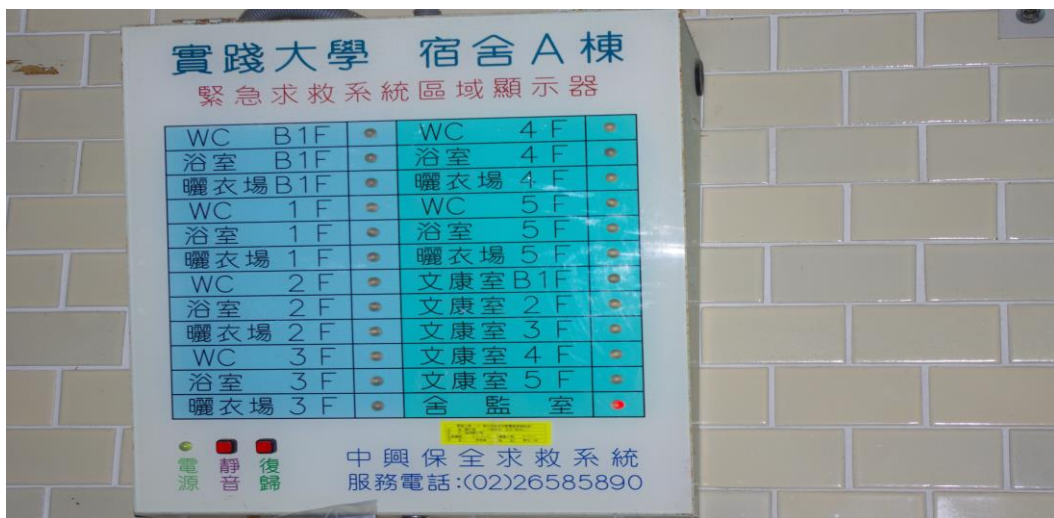 實踐大學 宿舍A棟
緊急求救系統區域顯示器
WC B1F WC 4F
浴室 B1F 浴室 4F
曬衣場B1F 曬衣場 4F
WC 1F WC 5F
浴室 1F 浴室 5F
曬衣場 1F 曬衣場 5F
WC 2F 文康室B1F
浴室 2F 文康室 2F
曬衣場 2F 文康室 3F
WC 3F 文康室 4F
浴室 3F 文康室 5F
曬衣場 3F 舍監室
電源 靜音 復歸
中興保全求救系統
服務電話:(02)26585890